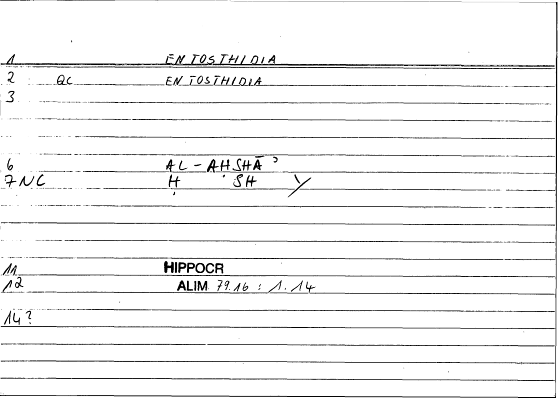 1 ENTOSTHIDIA
2 QC ENTOSTHIDIA
3
6 AL-AḤSHĀʾ
7 NC Ḥ SH Y
11 HIPPOCR
12 ALIM 79.16 : 1.14
14?